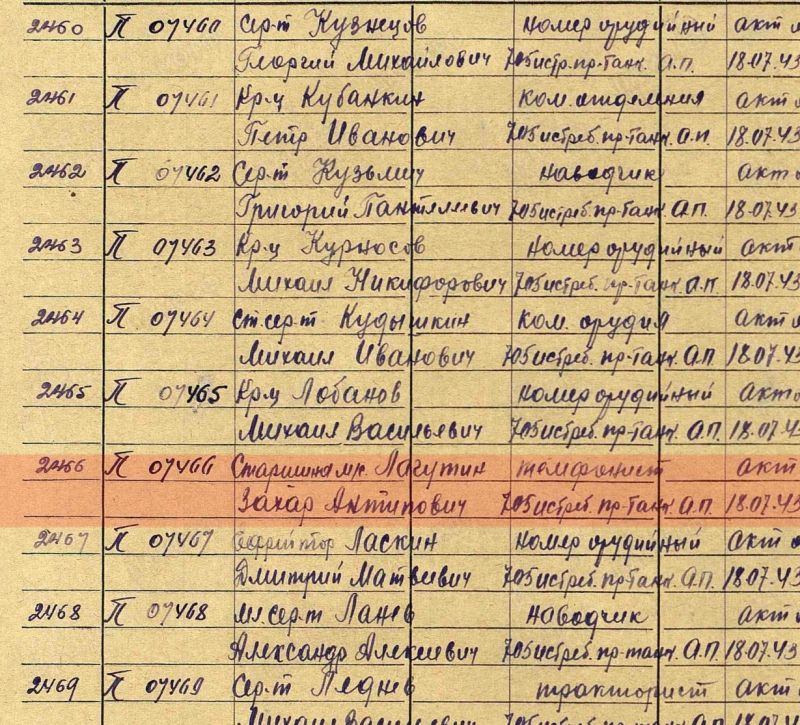 2460 П 07460 Сер-т Кузнецов номер орудийный акт
Георгий Михайлович 705 истр. пр-танк. А.П. 18.07.43
2461 П 07461 Кр-ц Кубанкин ком. отделения акт
Петр Иванович 705 истреб. пр-танк. А.П. 18.07.43
2462 П 07462 Сер-т Кузьмич наводчик акт
Григорий Пантелеевич 705 истреб. пр-танк. А.П. 18.07.43
2463 П 07463 Кр-ц Курносов номер орудийный акт
Михаил Никифорович 705 истреб. пр-танк. А.П. 18.07.43
2464 П 07464 Ст. сер-т Кудышкин ком. орудия акт
Михаил Иванович 705 истреб. пр-танк. А.П. 18.07.43
2465 П 07465 Кр-ц Лобанов номер орудийный акт
Михаил Васильевич 705 истреб. пр-танк. А.П. 18.07.43
2466 П 07466 Старшина Лагутин телефонист акт
Захар Антипович 705 истреб. пр-танк. А.П. 18.07.43
2467 П 07467 Ефрейтор Ласкин номер орудийный акт
Дмитрий Матвеевич 705 истреб. пр-танк. А.П. 18.07.43
2468 П 07468 мл. сер-т Ланев наводчик акт
Александр Алексеевич 705 истреб. пр-танк. А.П. 18.07.43
2469 П 07469 Сер-т Леднев тракторист акт